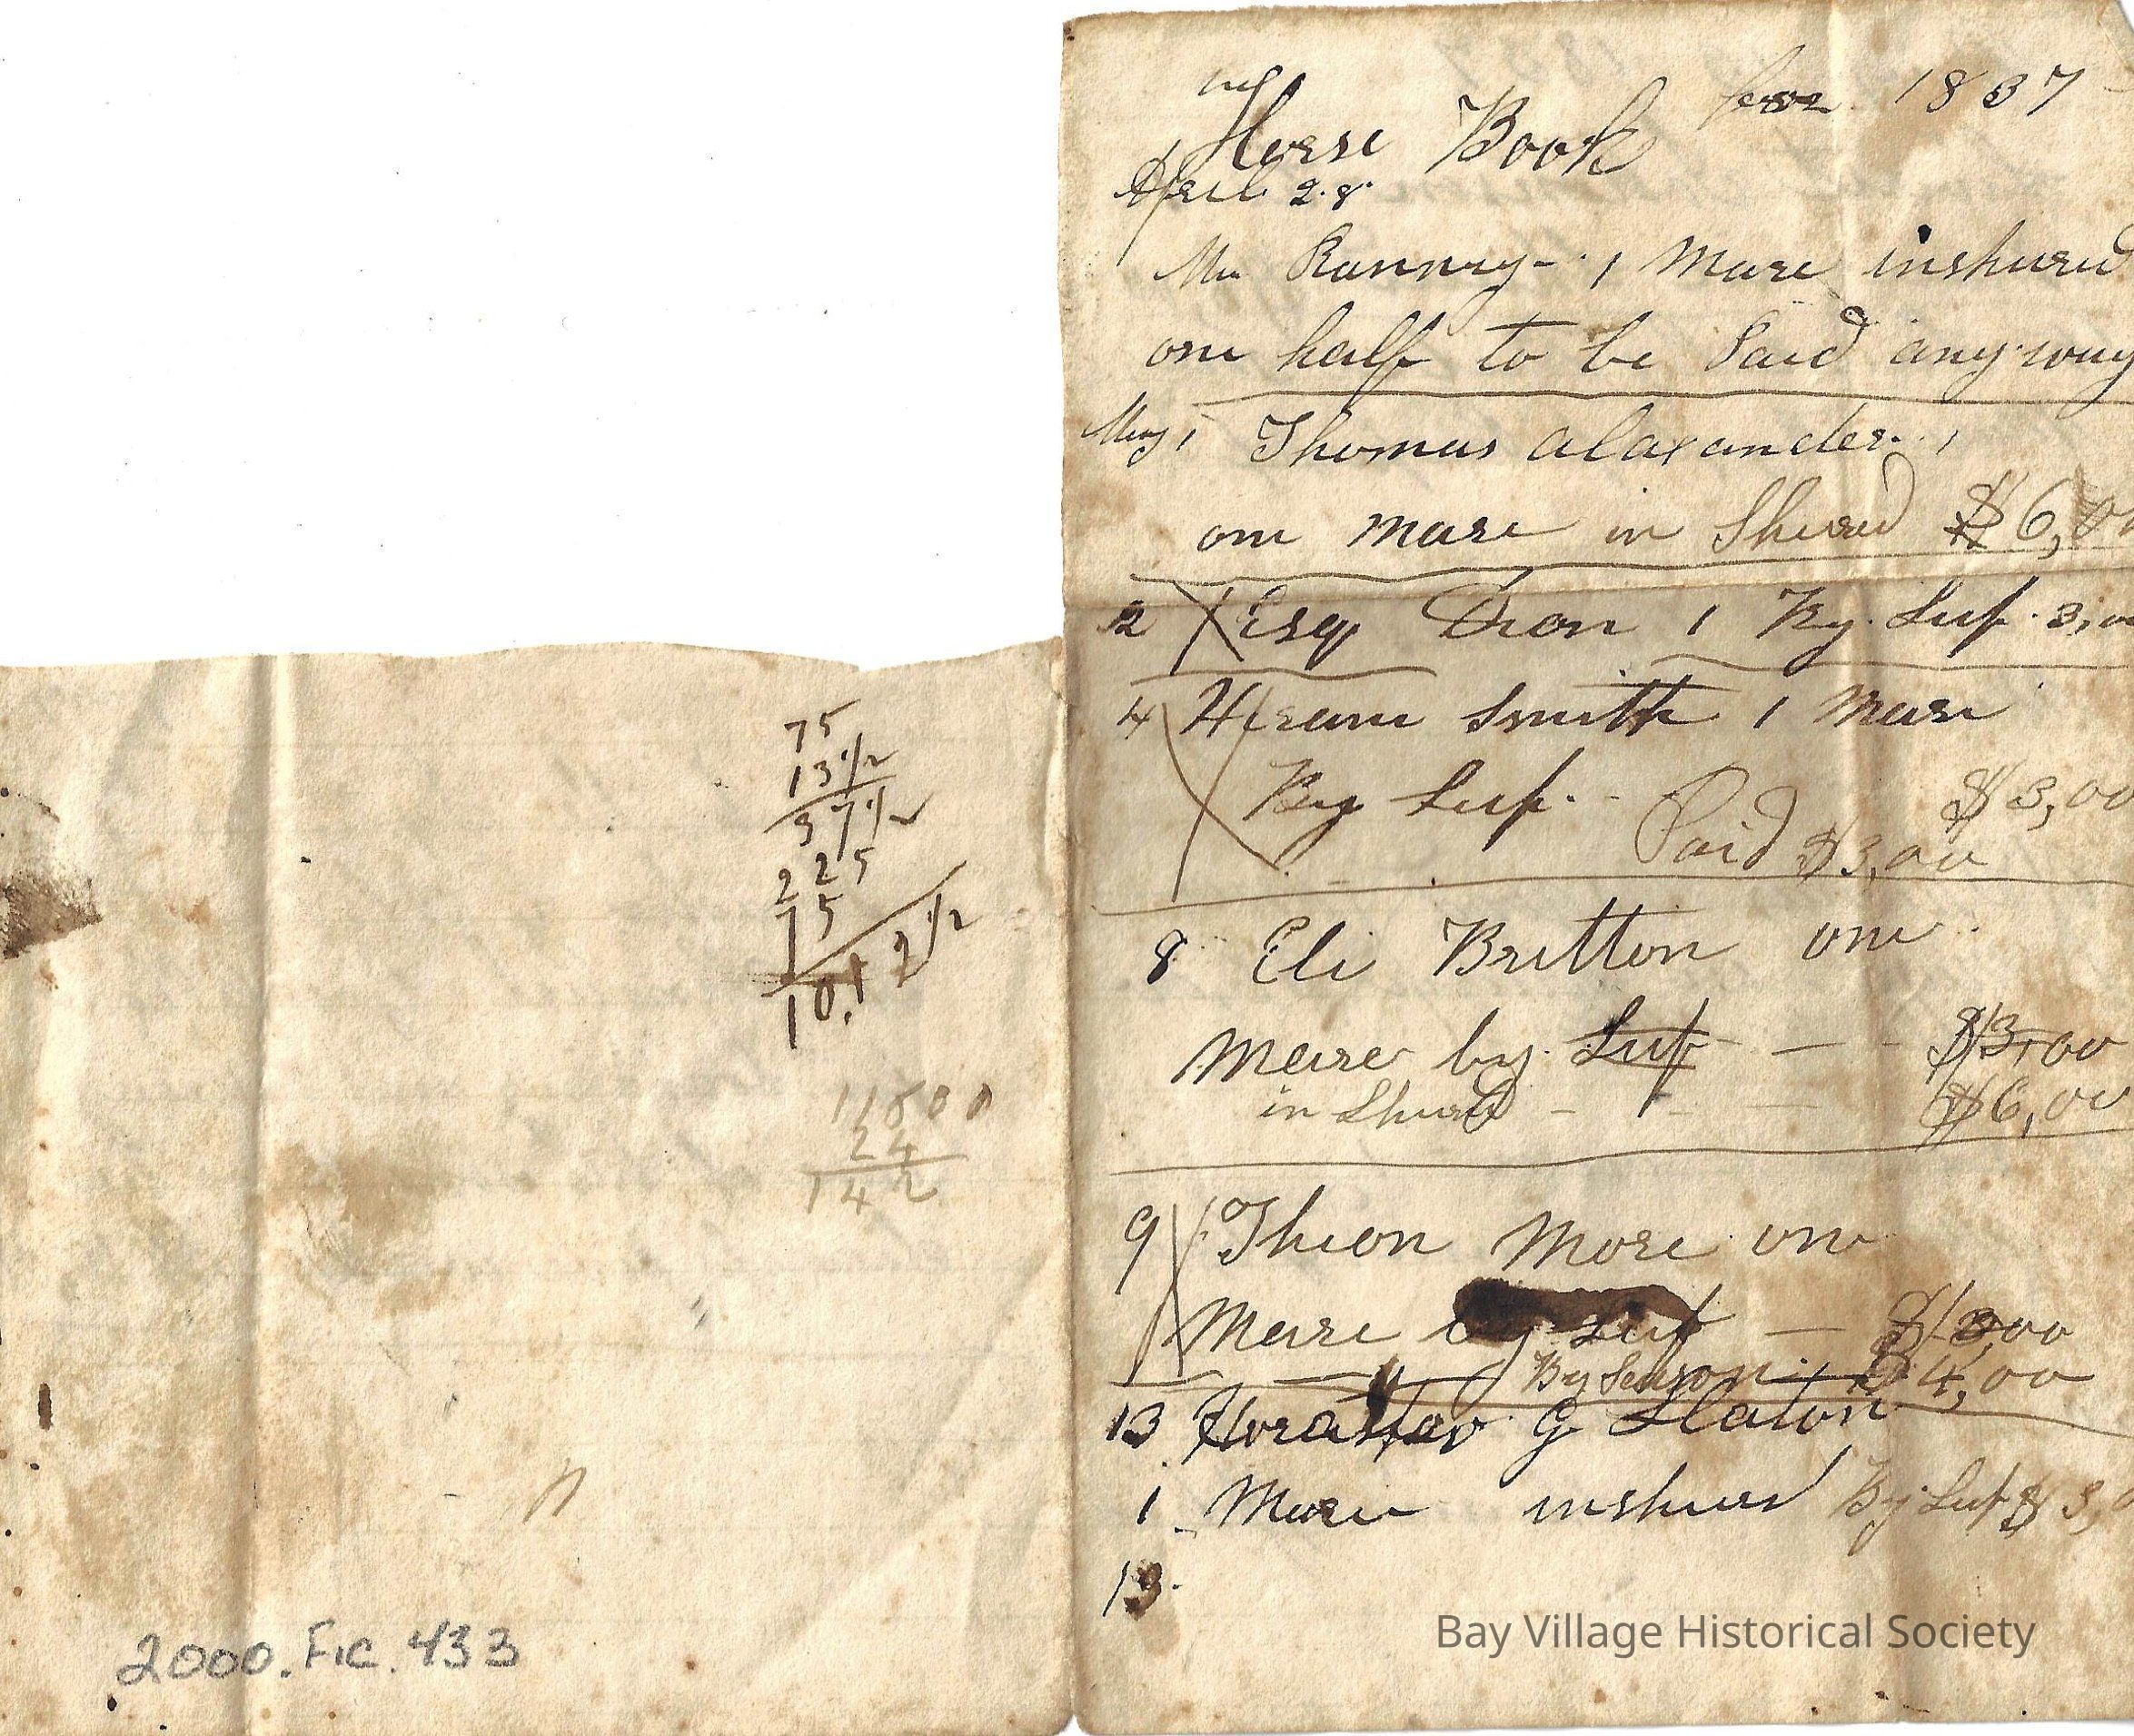 75
13 1/2
37 1/2
225
75
1012 1/2
11800
24
142
2000.FIC.433
my
Horse Book for 1837
April 28
Mr Ranny - 1 Mare inshured
one half to be Paid any way
May 1 Thomas alaxander 1
one mare in Shured $6,00
2 Esq Dean 1 By Leap 3,00
4 Hiram Smith 1 Mare
By Leap - $3,00
Paid $3,00
8 Eli Britton one
Mare by Leap - $3,00
in Shured - $6,00
9 Theon More one
Mare by Leap - $3,00
By Season $4,00
13 G Slaton
1 Mare inshured By Leap $3,0
13
Bay Village Historical Society